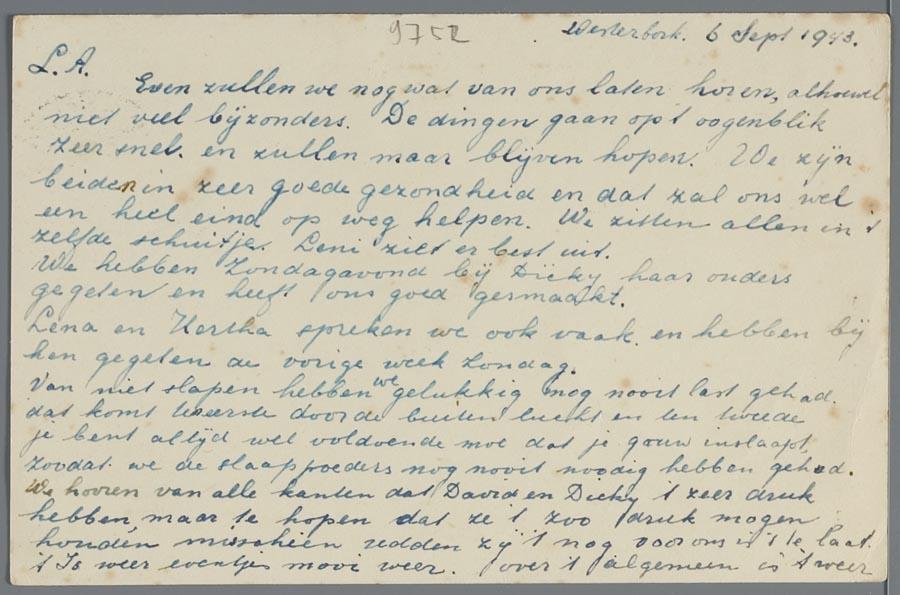 9752
Westerbork. 6 Sept 1943.
L.A.
Even zullen we nog wat van ons laten horen, alhoewel
niet veel bijzonders. De dingen gaan op 't oogenblik
zeer snel. en zullen maar blijven hopen. We zijn
beiden in zeer goede gezondheid en dat zal ons wel
een heel eind op weg helpen. We zitten allen in 't
zelfde schuitje. Leni ziet er best uit.
We hebben Zondagavond bij Dicky haar ouders
gegeten en heeft ons goed gesmaakt.
Lena en Hertha spreken we ook vaak. en hebben bij
hen gegeten de vorige week Zondag.
Van niet slapen hebben we gelukkig nog nooit last gehad.
dat komt teneerste door de buiten lucht en ten tweede
je bent altijd wel voldoende moe dat je gouw inslaapt,
zoodat we de slaappoeders nog nooit noodig hebben gehad.
We hooren van alle kanten dat David en Dicky 't zeer druk
hebben, maar te hopen dat ze 't zoo druk mogen
houden, misschien redden zij 't nog voor ons is 't te laat.
't Is weer eventjes mooi weer. over 't algemeen is 't weer